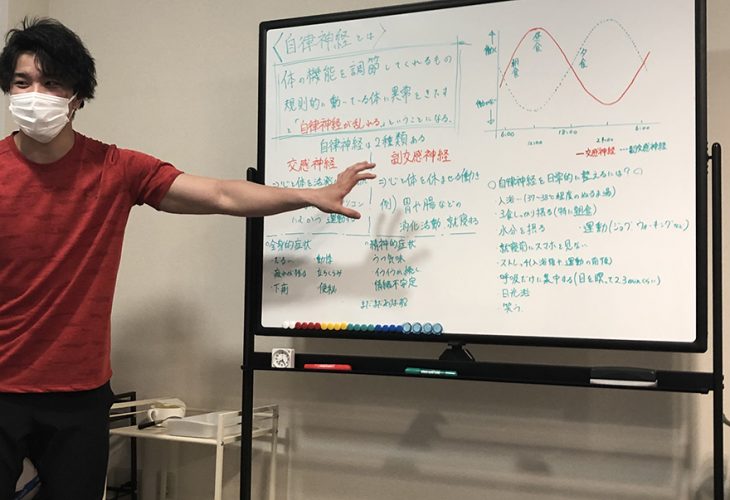 〈自律神経とは〉
体の機能を調節してくれるもの
規則的に動いている体に異常をきたす
と「自律神経が乱れる」ということになる。
自律神経は2種類ある
交感神経
⇒心と体を活
運動す
副交感神経
⇒心と体を休ませる働き
例) 胃や腸などの
消化活動、就寝する
○全身的症状
・だるい ・動悸
・疲れが残る ・立ちくらみ
・下痢 ・便秘
○精神的症状
・うつ気味
・イライラが続く
・情緒不安定
働く
朝食
昼食
夕食
6:00
12:00
18:00
24:00
6:00
―交感神経 ‥‥副交感神経
○自律神経を日常的に整えるには?○
・入浴…(37~38℃程度のぬるま湯)
・3食しっかり摂る(特に朝食)
・水分を摂る ・運動(ジョグ、ウォーキングなど)
・就寝前にスマホを見ない
・ストレッチ(入浴後や、運動の前後)
・呼吸だけに集中する(目を瞑って2.3minくらい)
・日光浴
・笑う